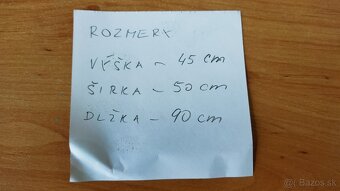 ROZMERY
VÝŠKA - 45 cm
ŠIRKA - 50 cm
DLŽKA - 90 cm
Bazos.sk